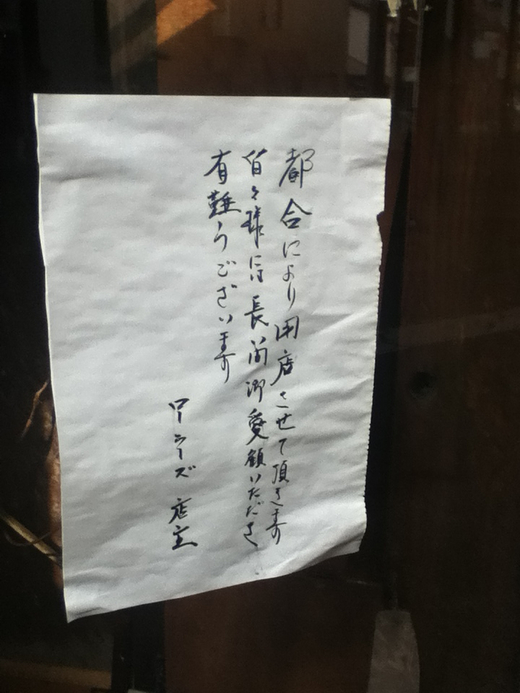 都合により閉店させて頂きます
皆々様には長間御愛願いただき
有難うございます
ローラーズ 店主